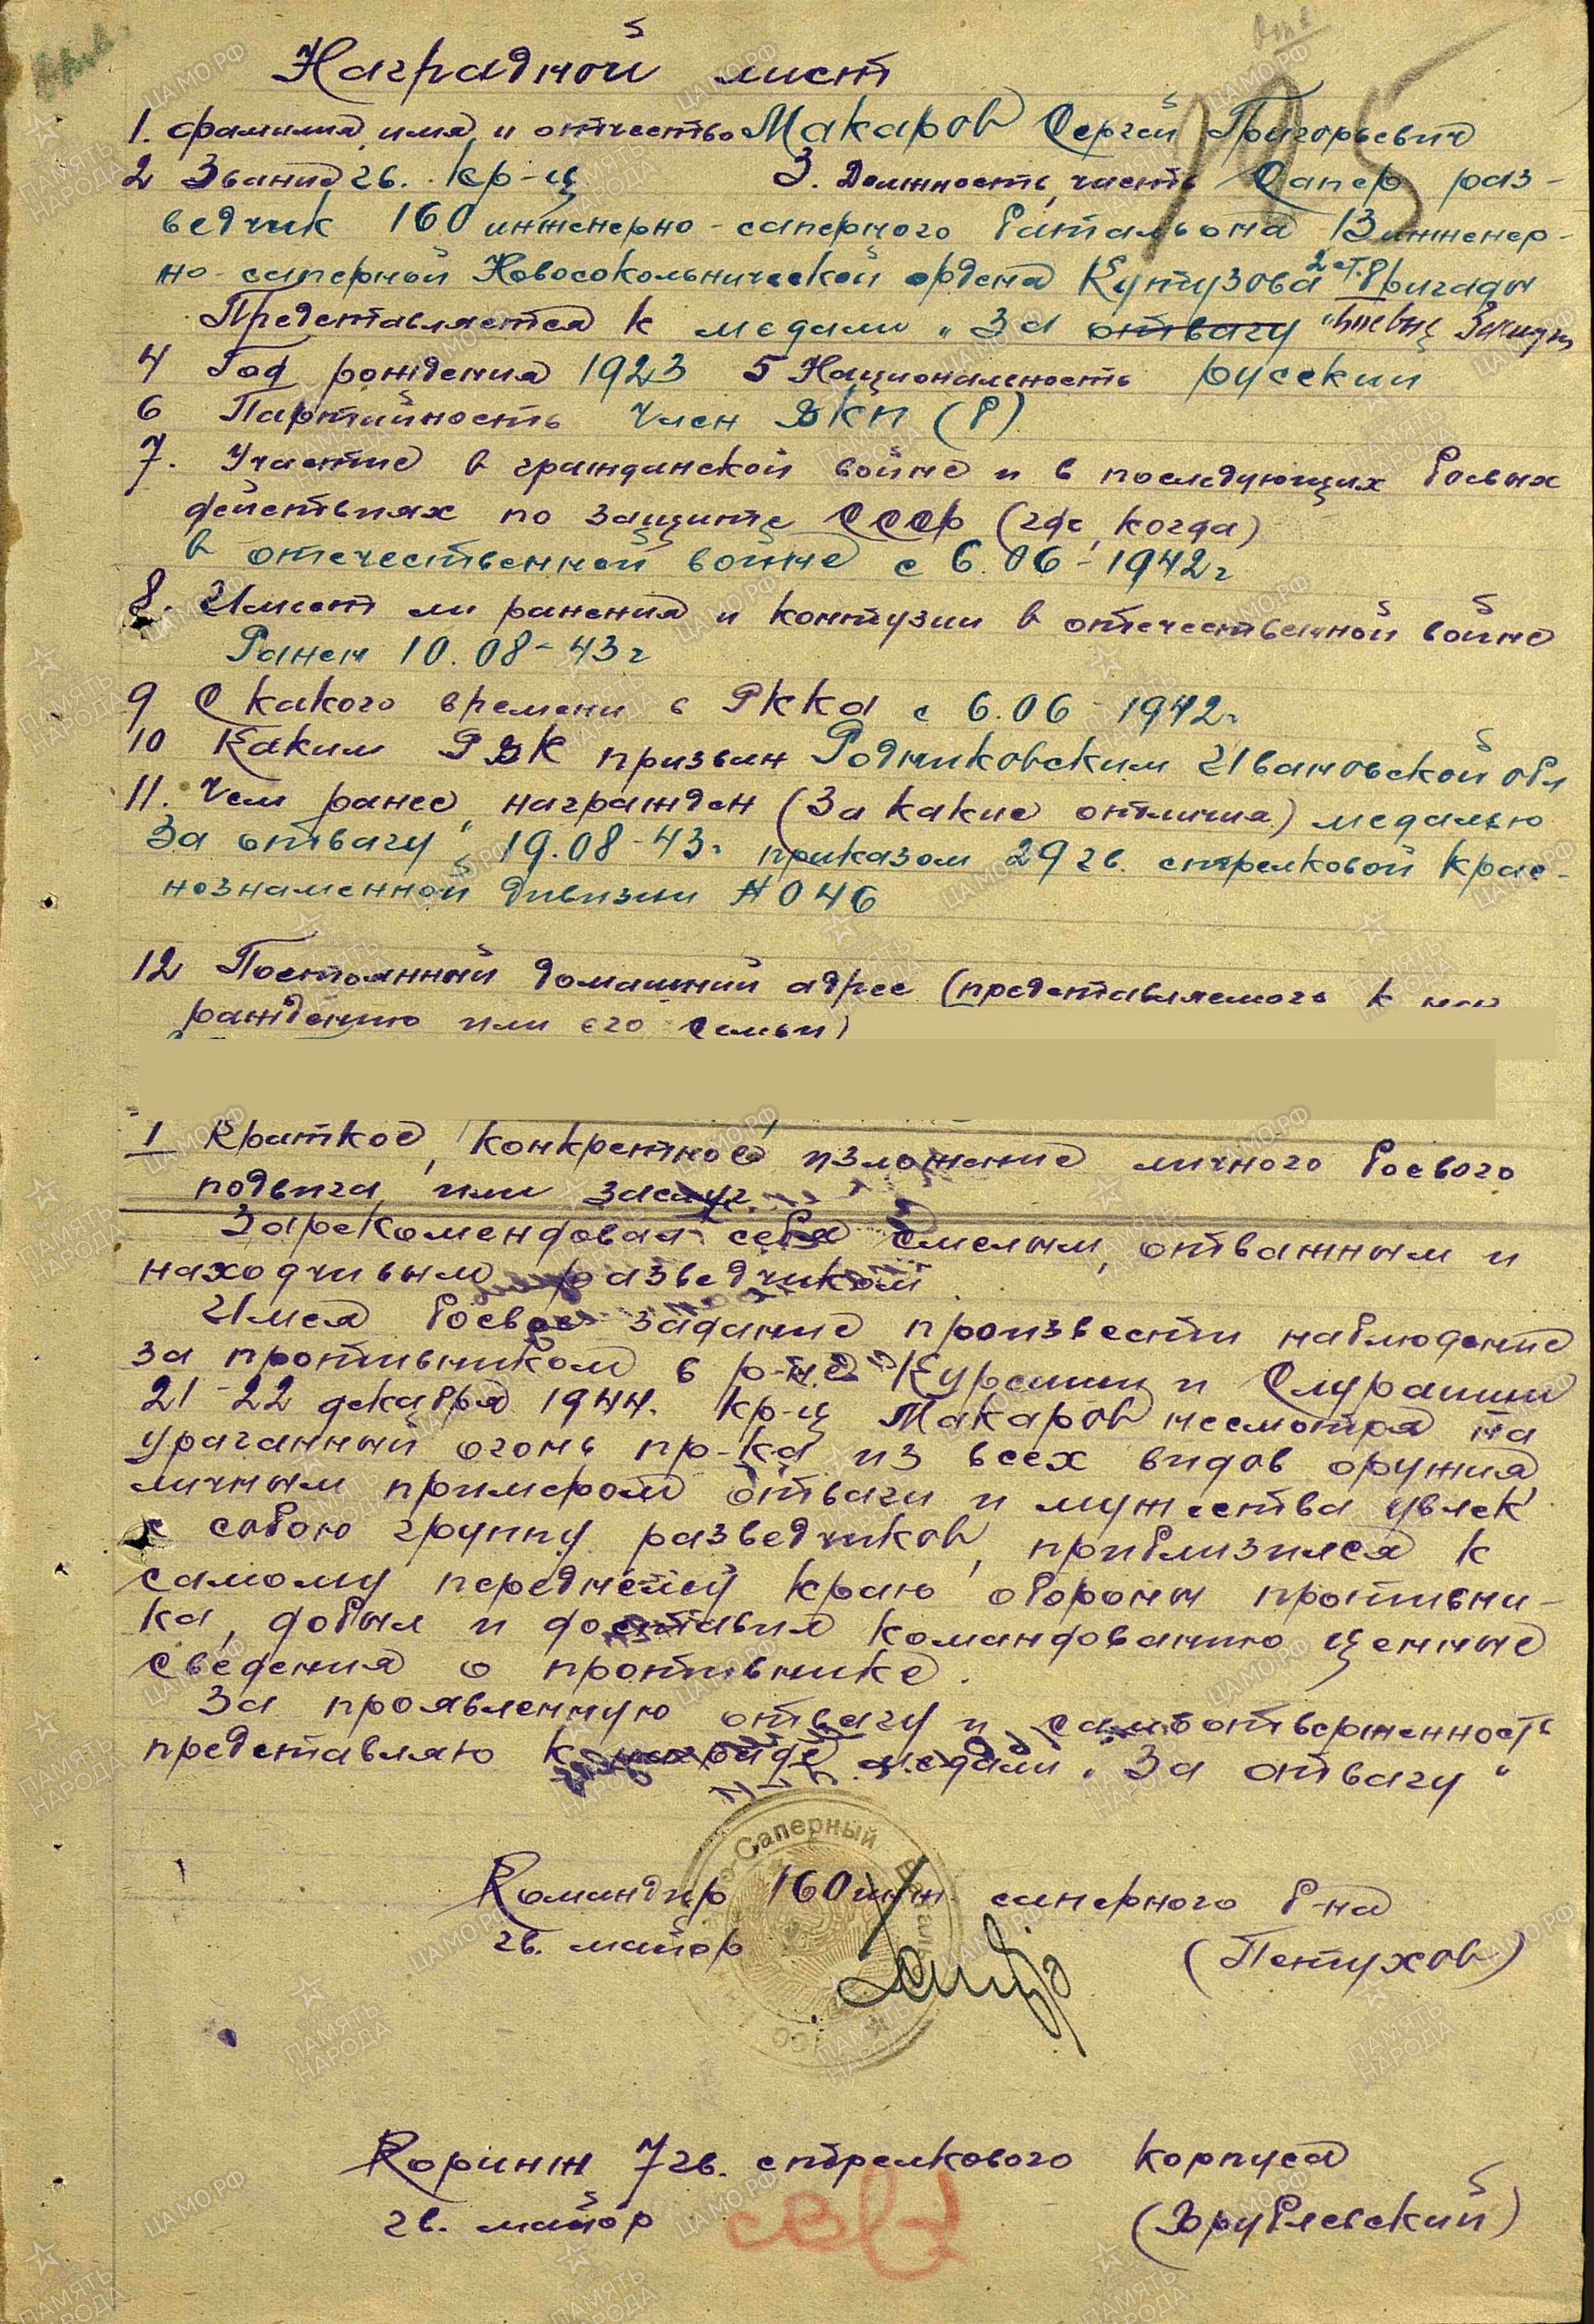 Наградной лист
1. фамилия, имя, и отчество Макаров Сергей Григорьевич
2 Звание гв. кр-ц 3. Должность, часть Сапер раз-
ведчик 160 инженерно-саперного батальона 13 инженер-
но-саперной Новосокольнической ордена Кутузова 2 ст. бригады
Представляется к медали „За отвагу
4 Год рождения 1923 5 Национальность русский
6 Партийность Член ВКП(б)
7. Участие в гражданской войне и в последующих боевых
действиях по защите СССР (где, когда)
в отечественной войне с 6.06-1942г
8. Имеет ли ранения и контузии в отечественной войне
Ранен 10.08-43г
9 С какого времени в РККА с 6.06 1942г
10 Каким РВК призван Родниковским Ивановской обл
11. Чем ранее награжден (За какие отличия) медалью
За отвагу" 19.08-43г приказом 29 гв. стрелковой Крас-
нознаменной дивизии №046
12 Постоянный домашний адрес (представляемого к наг
раждению или его семьи)
I Краткое, конкретное изложение личного боевого
подвига или заслуг.
Зарекомендовал себя смелым, отважным и
находчивым разведчиком.
Имея боевое задание произвести наблюдение
за противником в р-не Курсиши и Смураши
21-22 декабря 1944. кр-ц Макаров несмотря на
ураганный огонь пр-ка из всех видов оружия
личным примером отваги и мужества увлек
с собою группу разведчиков, приблизился к
самому переднему краю обороны противни-
ка, добыл и доставил командованию ценные
сведения о противнике.
За проявленную отвагу и самоотверженность
представляю к награде медали „За отвагу"
Командир 160 инж. саперного б-на
гв. майор (Петухов)
Саперный Батальон
Коринж 7 гв. стрелкового корпуса
гв. майор (Зрублевский)
195
ПАМЯТЬ НАРОДА
ЦАМО.РФ